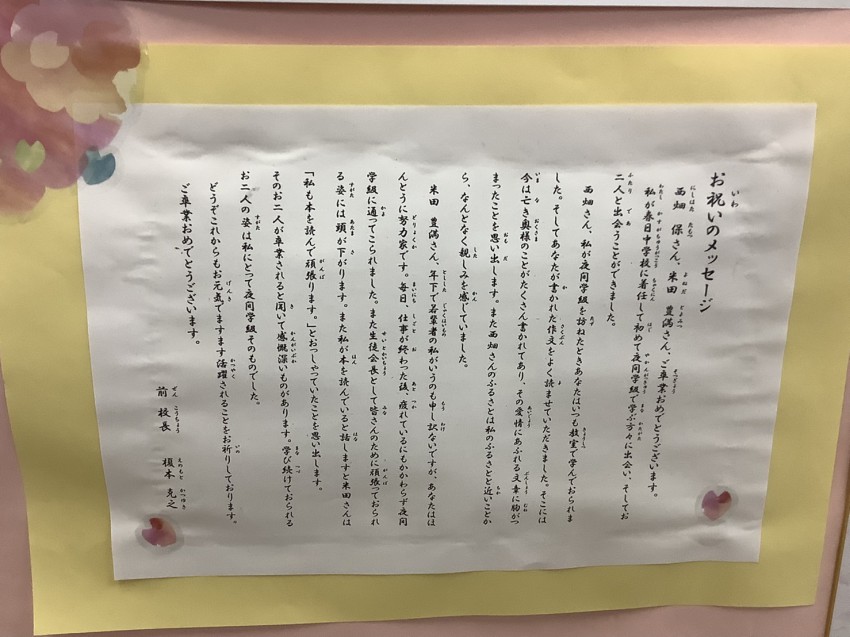 お祝いのメッセージ
西畑 保さん、米田 豊満さん、ご卒業おめでとうございます。
私が春日中学校に着任して初めて夜間学級で学ぶ方々に出会い、そしてお
二人と出会うことができました。
西畑さん、私が夜間学級を訪ねたときあなたはいつも教室で学んでおられま
した。そしてあなたが書かれた作文をよく読ませていただきました。そこには
今は亡き奥様のことがたくさん書かれてあり、その愛情にあふれる文章に胸がつ
まったことを思い出します。また西畑さんのふるさとは私のふるさとと近いことか
ら、なんとなく親しみを感じていました。
米田 豊満さん、年下で若輩者の私がいうのも申し訳ないですが、あなたはほ
んとうに努力家です。毎日、仕事が終わった後、疲れているにもかかわらず夜間
学級に通ってこられました。また生徒会長として皆さんのために頑張っておられ
る姿には頭が下がります。また私が本を読んでいると話しますと米田さんは
「私も本を読んで頑張ります。」とおっしゃっていたことを思い出します。
そのお二人が卒業されると聞いて感慨深いものがあります。学び続けておられる
お二人の姿は私にとって夜間学級そのものでした。
どうぞこれからもお元気でますます活躍されることをお祈りしております。
ご卒業おめでとうございます。
前 校長 榎本 克之